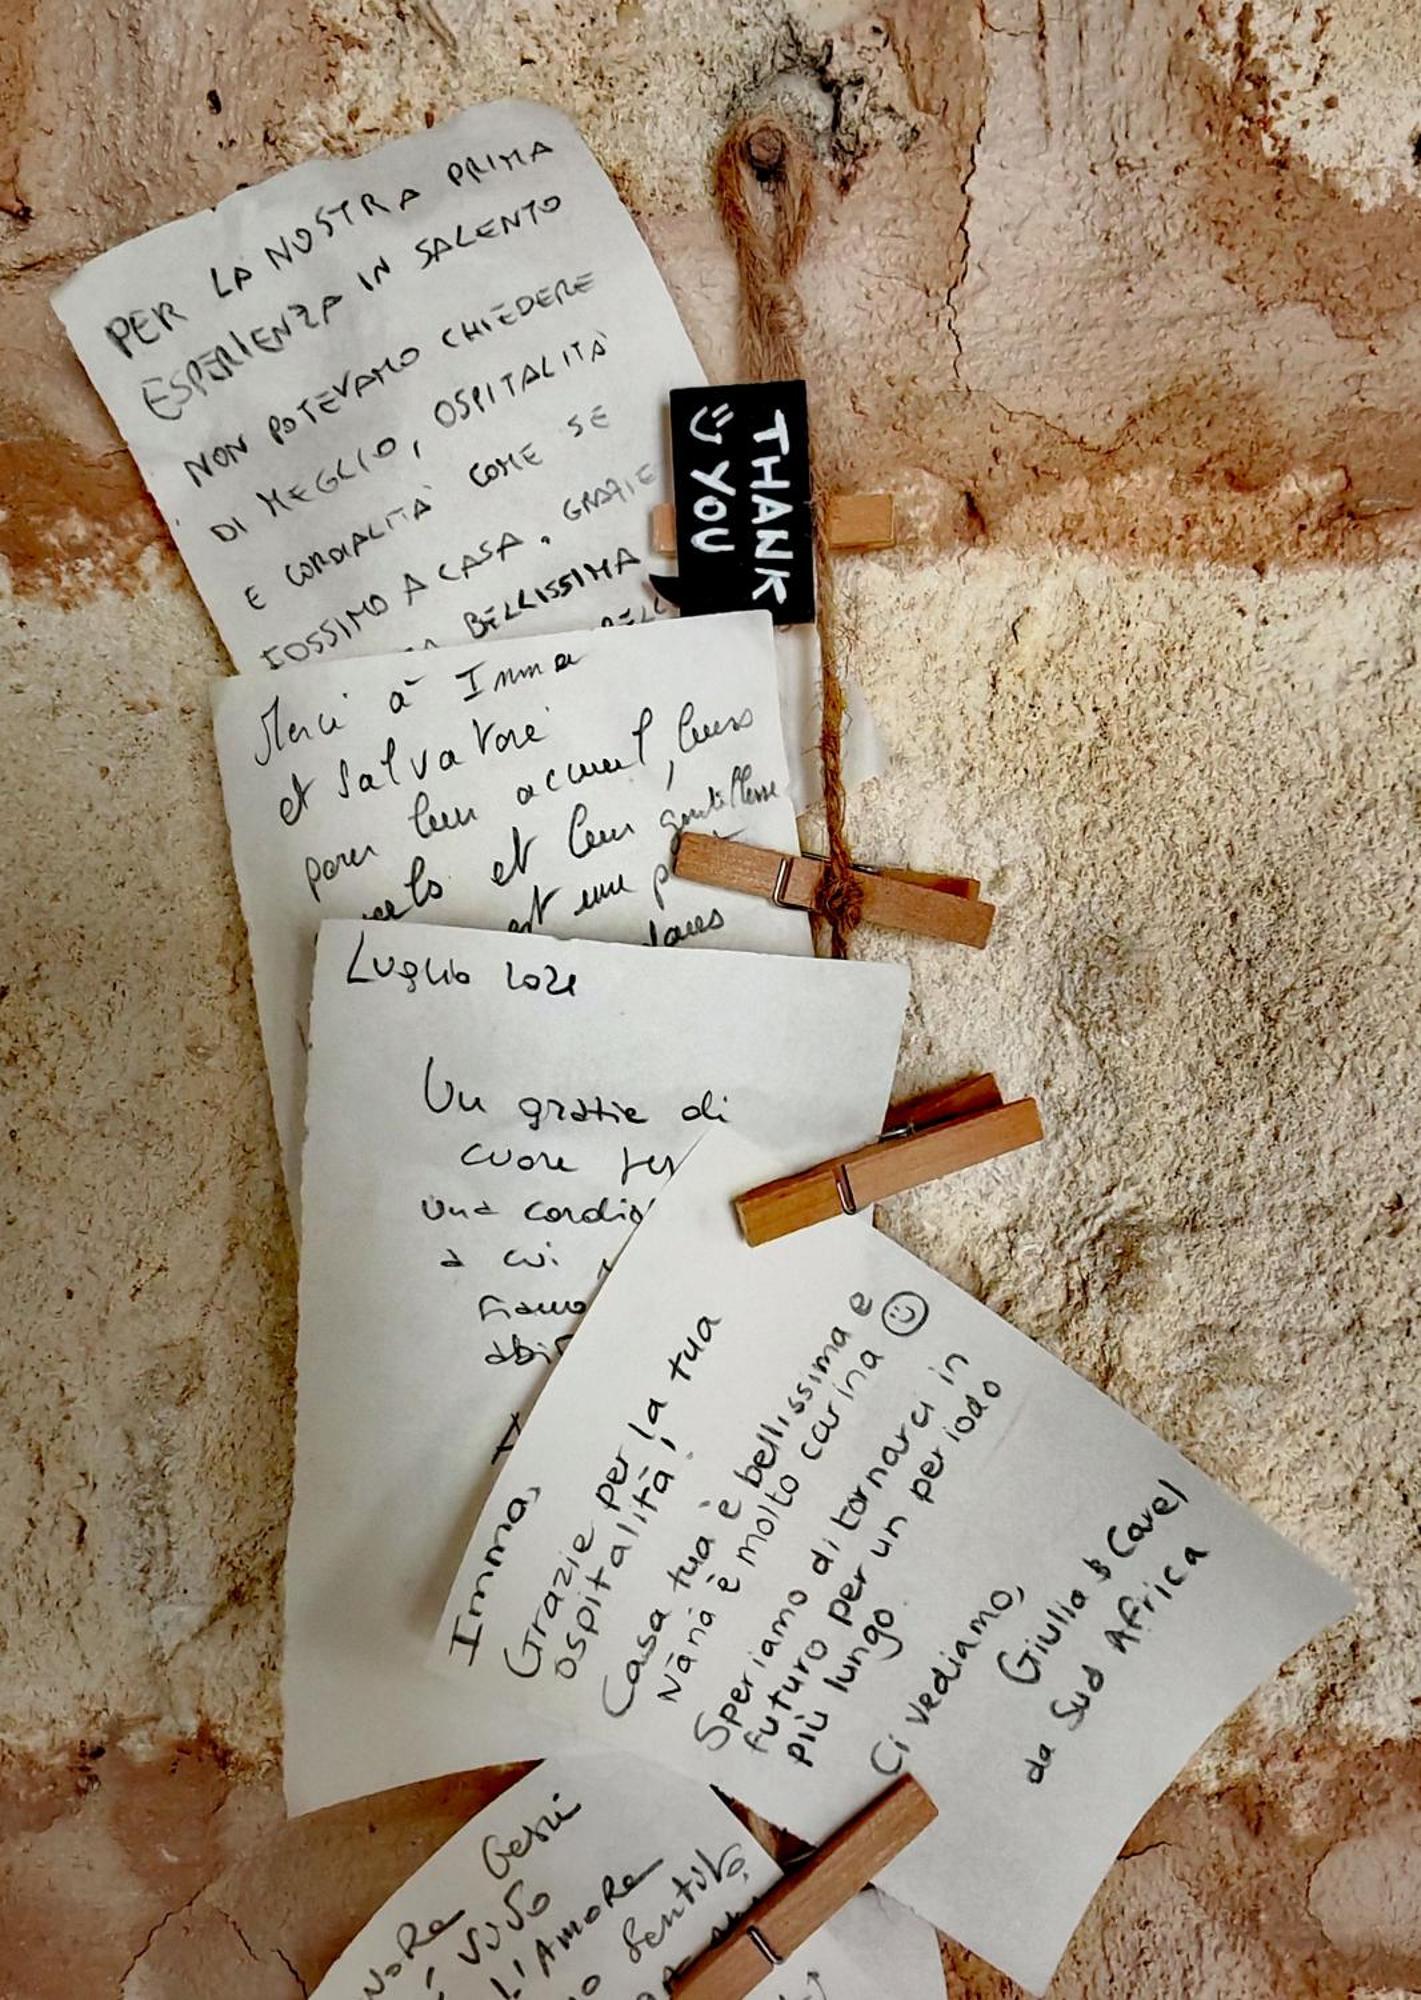 PER LA NOSTRA PRIMA
ESPERIENZA IN SALENTO
NON POTEVAMO CHIEDERE
DI MEGLIO, OSPITALITÀ
E CORDIALITÀ COME SE
FOSSIMO A CASA. GRAZIE
BELLISSIMA
THANK
YOU
Merci à Imma
et Salvatore
pour leur accueil, leurs
et leur gentillesse
est une
dans
Luglio 2021
Un grazie di
cuore per
una cordia
a cui
siamo
Imma,
Grazie per la tua
ospitalità!
Casa tua è bellissima e
Nanà è molto carina
Speriamo di tornarci in
futuro per un periodo
più lungo.
Ci vediamo,
Giulia & Cavel
da Sud Africa
Gesù
L'AMORE
sentito